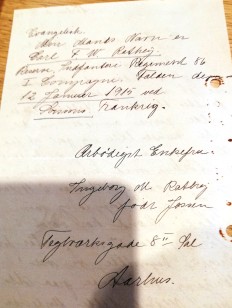 Evangelisk
Min Mands Navn er
Carl F. W. Rathje
Reserve Infanterie Regiment 86
I Compagni. Falden den
12 Januar 1915 ved
Frankrig.
Ærbødigst Enkefru
Ingeborg M. Rathje
født Jessen
Teglværksgade 8 II Sal
Aarhus.